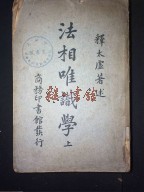 釋太虛著述
法相唯識學 上
商務印書館發行